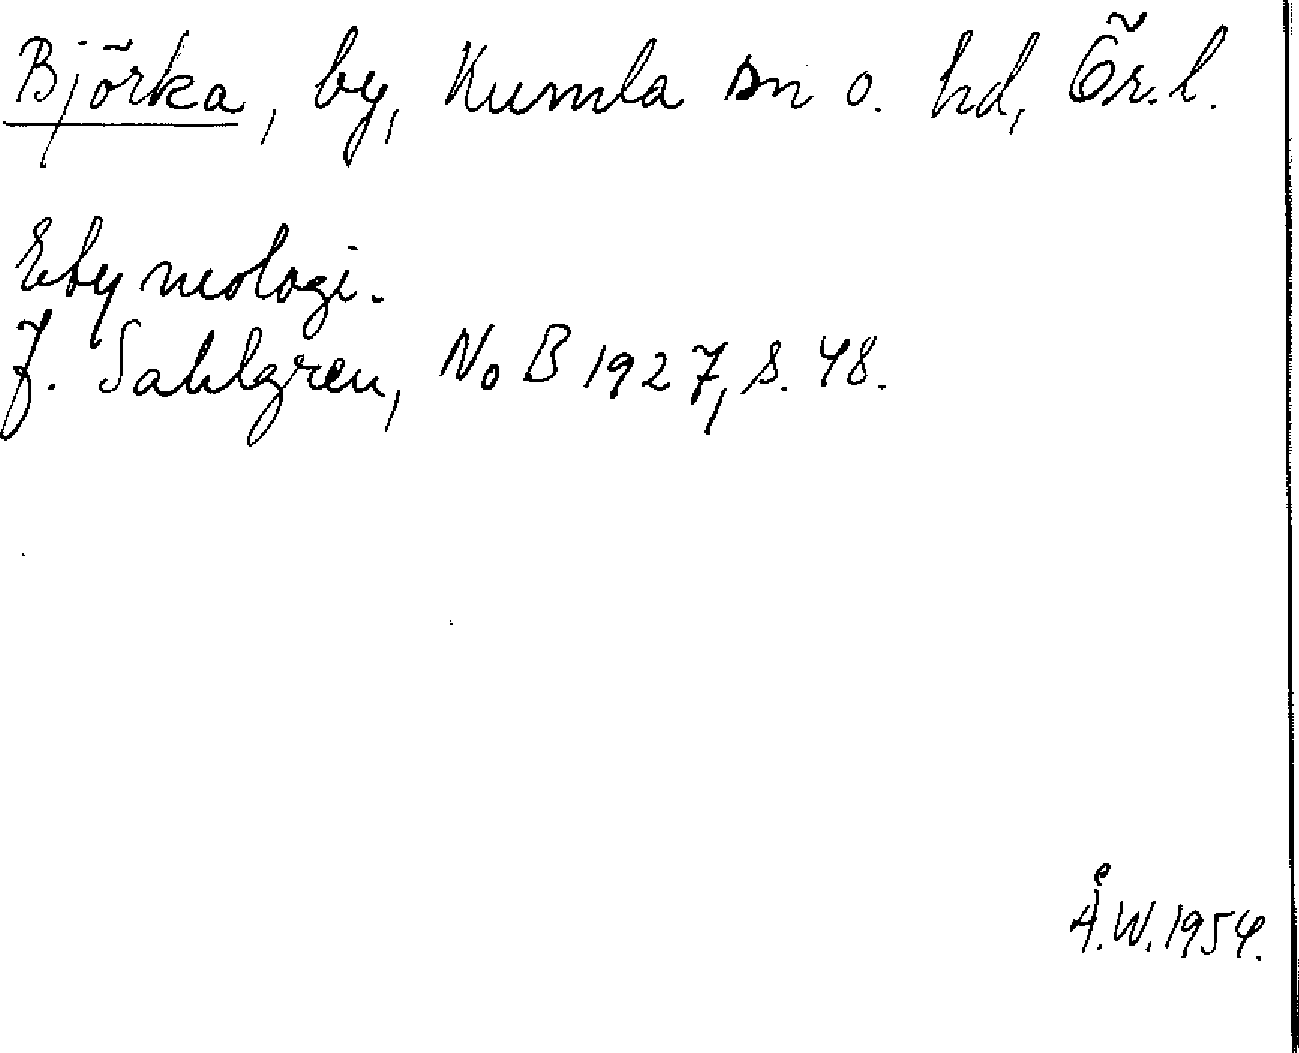 Björka, by, Kumla sn o. hd, Ör.l.
Etymologi.
J. Sahlgren, NoB 1927, s. 48.
Å.W. 1954.